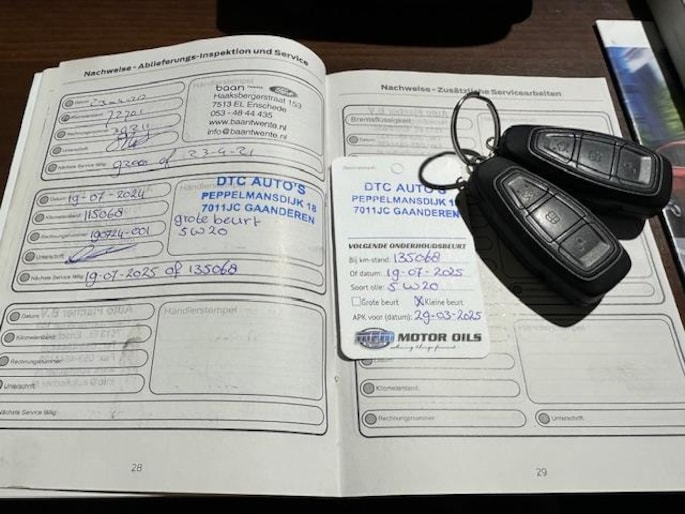 Nachweise - Ablieferungs-Inspektion und Service
Datum
Kilometerstand 72701
Rechnungsnummer
Unterschrift
Nächste Service fällig 92000 of 23-4-21
Händlerstempel
baan twente Ford
Haaksbergerstraat 153
7513 EL Enschede
053 - 48 44 435
www.baantwente.nl
info@baantwente.nl
Datum 19-07-2024
Kilometerstand 115068
Rechnungsnummer 190724-001
Unterschrift
Nächste Service fällig 19-07-2025 of 135068
DTC AUTO'S
PEPPELMANSDIJK 18
7011JC GAANDEREN
grote beurt
5W20
Datum
Kilometerstand
Rechnungsnummer
Unterschrift
Nächste Service fällig
Händlerstempel
28
Nachweise - Zusätzliche Servicearbeiten
Bremsflüssigkeit
DTC AUTO'S
PEPPELMANSDIJK 18
7011JC GAANDEREN
VOLGENDE ONDERHOUDSBEURT
Bij km-stand: 135068
Of datum: 19-07-2025
Soort olie: 5W20
Grote beurt Kleine beurt
APK voor (datum): 29-03-2025
MPM MOTOR OILS
Datum
Kilometerstand
Rechnungsnummer
Unterschrift
29